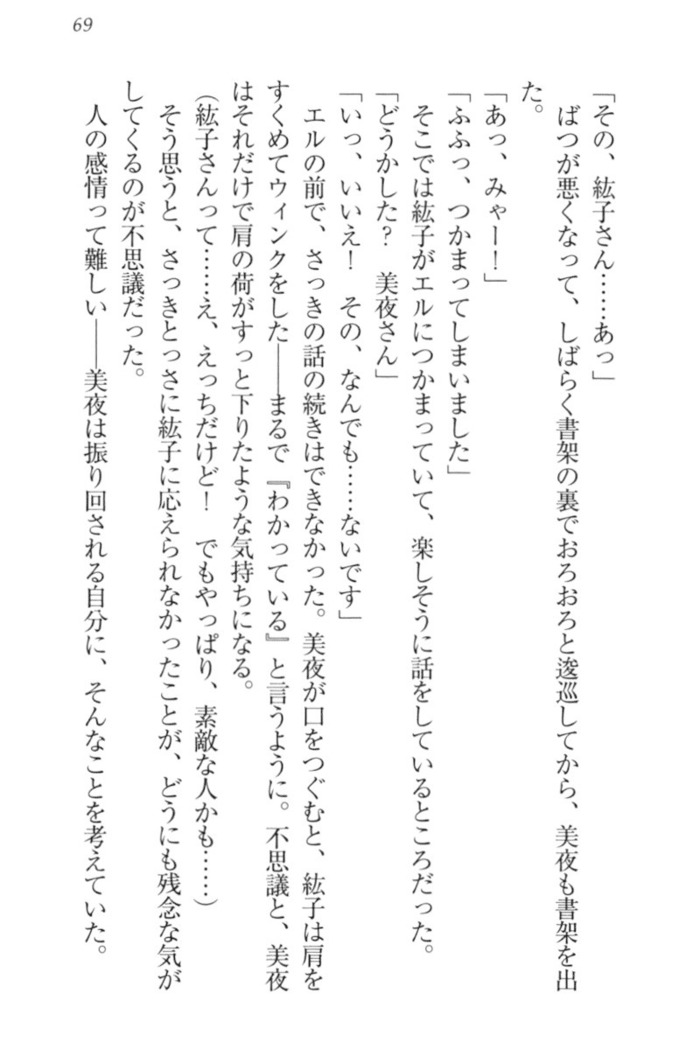 69
「その、紘子さん……あっ」
　ばつが悪くなって、しばらく書架の裏でおろおろと逡巡してから、美夜も書架を出
た。
「あっ、みゃー！」
「ふふっ、つかまってしまいました」
　そこでは紘子がエルにつかまっていて、楽しそうに話をしているところだった。
「どうかした？　美夜さん」
「いっ、いいえ！　その、なんでも……ないです」
　エルの前で、さっきの話の続きはできなかった。美夜が口をつぐむと、紘子は肩を
すくめてウィンクをした――まるで『わかっている』と言うように。不思議と、美夜
はそれだけで肩の荷がすっと下りたような気持ちになる。
（紘子さんって……え、えっちだけど！　でもやっぱり、素敵な人かも……）
　そう思うと、さっきとっさに紘子に応えられなかったことが、どうにも残念な気が
してくるのが不思議だった。
　人の感情って難しい――美夜は振り回される自分に、そんなことを考えていた。